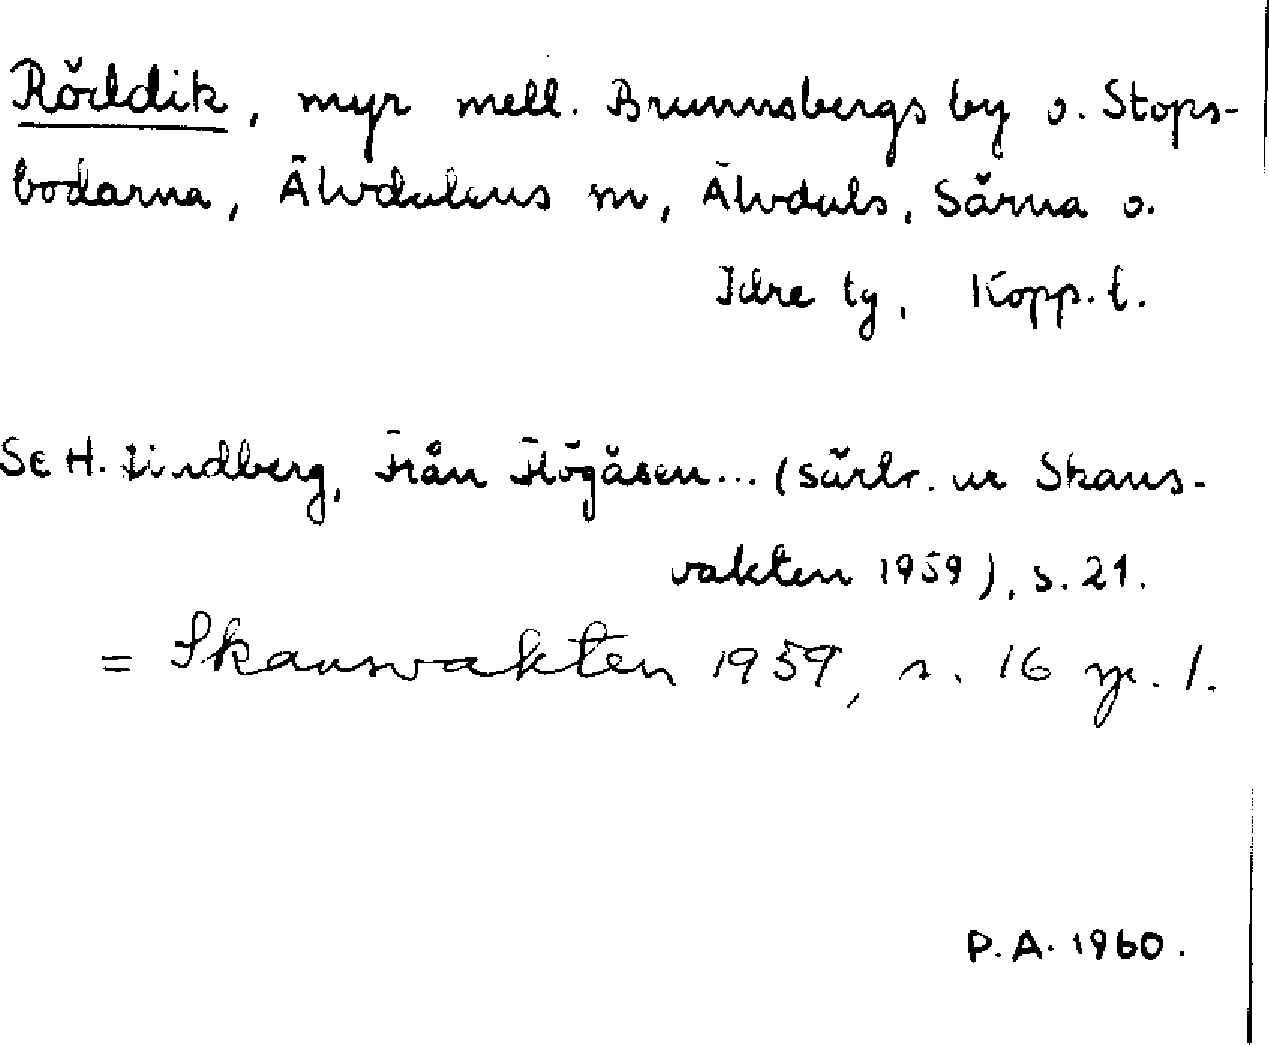 Röddik, myr mell. Brunnsbergs by o. Stops-
bodarna, Älvdalens sn, Älvdals, Särna o.
Idre tg, Kopp. l.
Se H. Lindberg, Från Högåsen... (särtr. ur Skans-
vakten 1959), s. 21.
= Skansvakten 1959, s. 16 sp. 1.
P.A. 1960.